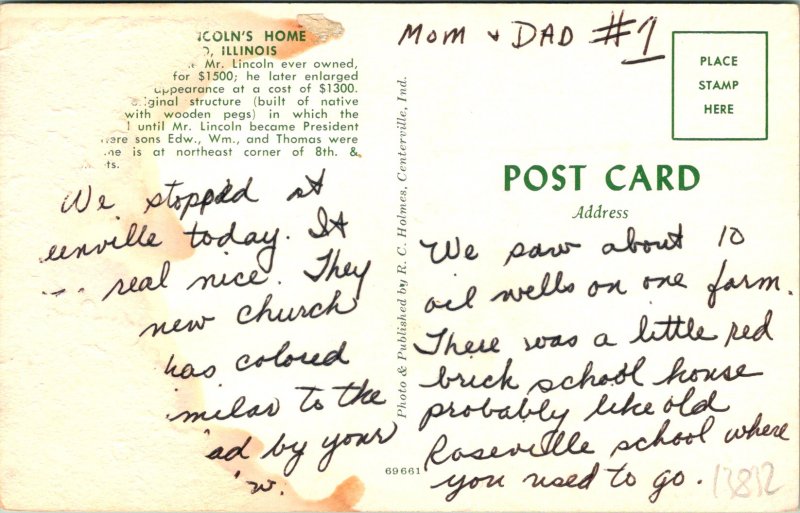 COLN'S HOME
, ILLINOIS
Mr. Lincoln ever owned,
for $1500; he later enlarged
ppearance at a cost of $1300.
ginal structure (built of native
with wooden pegs) in which the
until Mr. Lincoln became President
ere sons Edw., Wm., and Thomas were
me is at northeast corner of 8th. &
ts.
We stopped at
eenville today. It
real nice. They
new church
has colored
milar to the
ad by your
w.
Photo & Published by R. C. Holmes, Centerville, Ind.
69661
Mom & DAD #1
PLACE
STAMP
HERE
POST CARD
Address
We saw about 10
oil wells on one farm.
There was a little red
brick school house
probably like old
Roseville school where
you used to go.
13812